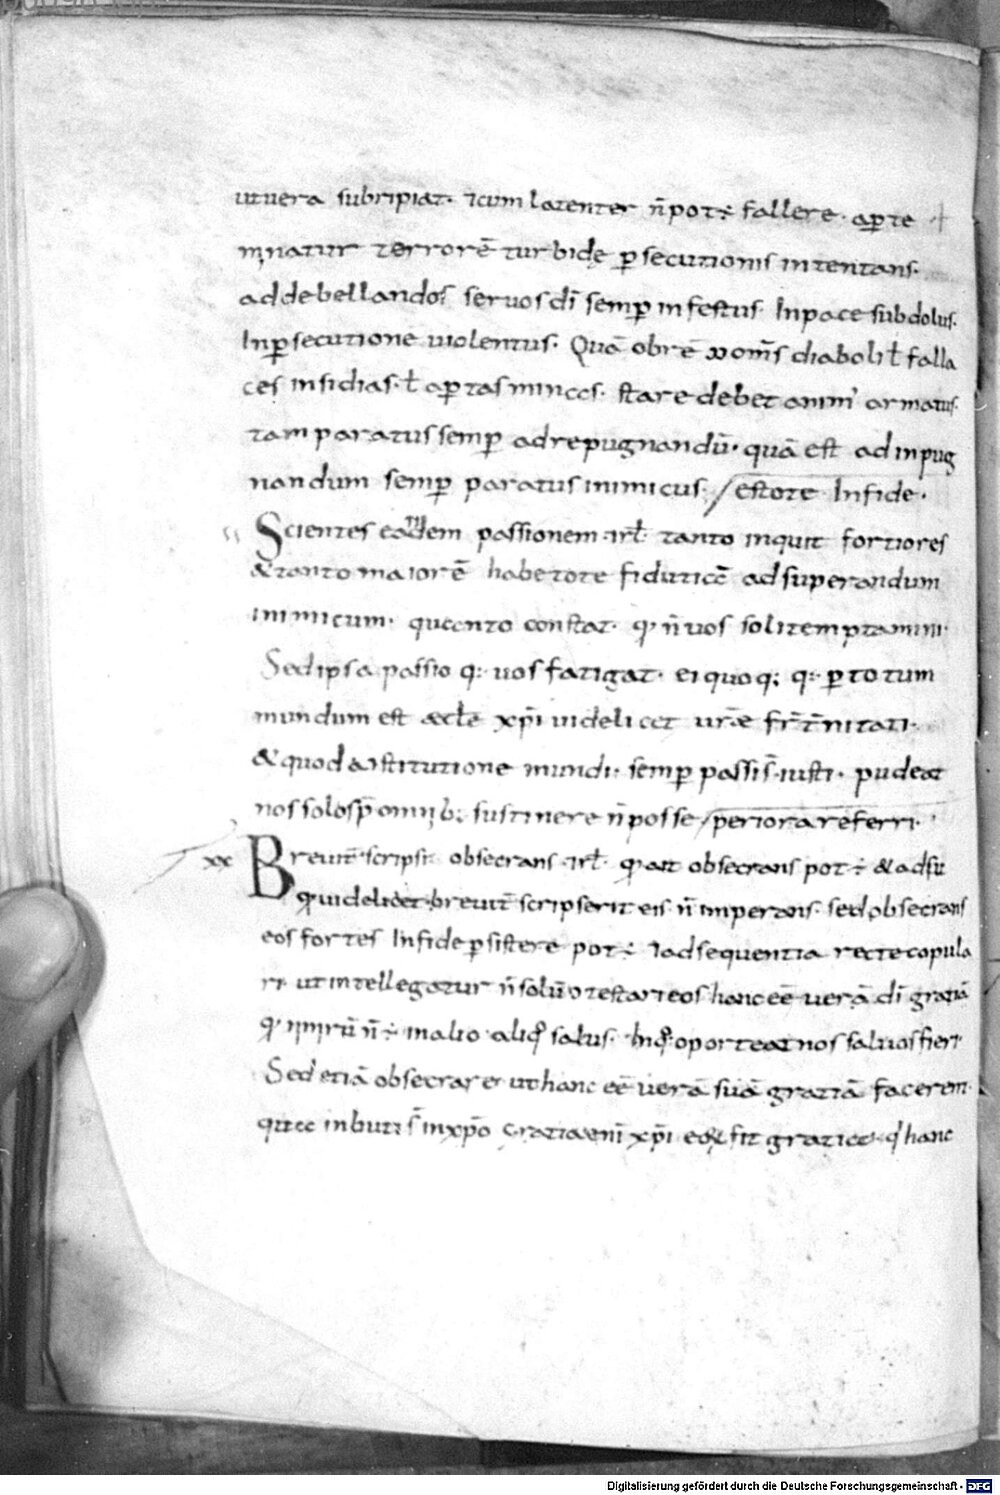 utuera subripiat· ⁊cum latenter n̄ pot÷ fallere· aꝑte
minatur terrorē turbidę ꝑsecutionis intentans·
addebellandos seruos dī semꝑ infestus· Inpace subdolus·
Inꝑsecutione uiolentus· Quā obrē ⁊ om̄s diaboli ł falla
ces insidias· ł aꝑtas minas· stare debet anim' armatus·
tam paratus semꝑ adrepugnandū· quā est ad inpug
nandum semꝑ paratus inimicus· / estote Infide·
Scientes eadem passionem· irł· tanto inquit fortiores
& tanto maiorē habetote fiduticā ad superandum
inimicum· quanto constat· qͥ n̄ uos soli temptamini·
Sed ipsa passio q: uos fatigat· ei quoq; q: ꝑ totum
mundum est æcłe xp̄i uidelicet ur̄æ fr̄t̄nitati·
& quod a c̄stitutione mundi· semꝑ passi s̄ iusti· pudeat
nos solos p̄ omnib; sustinere n̄ posse / periora referri·
xx Breuit̄ scripsi· obsecrans· irł· qͥ ait obsecrans pot÷ & adsu
qͥ uidelicet breuit̄ scripserit eis· n̄ imperans· sed obsecrans
eos fortes Infide ꝑsistere pot÷ ⁊ ad sequentia recte copula
ri· ut intellegatur n̄ solū ↄtestari eos hanc eē uerā dī gratiā
qͥ nimirū n̄ ÷ in alio aliqͦ salus· Inqͦ oporteat nos saluos fieri·
Sed etiā obsecrare ut hanc eē uerā suā gratiā facerent·
qua inbuti s̄ in xp̄o Gratia enī xp̄i eoꝝ fit gratia· qͥ hanc